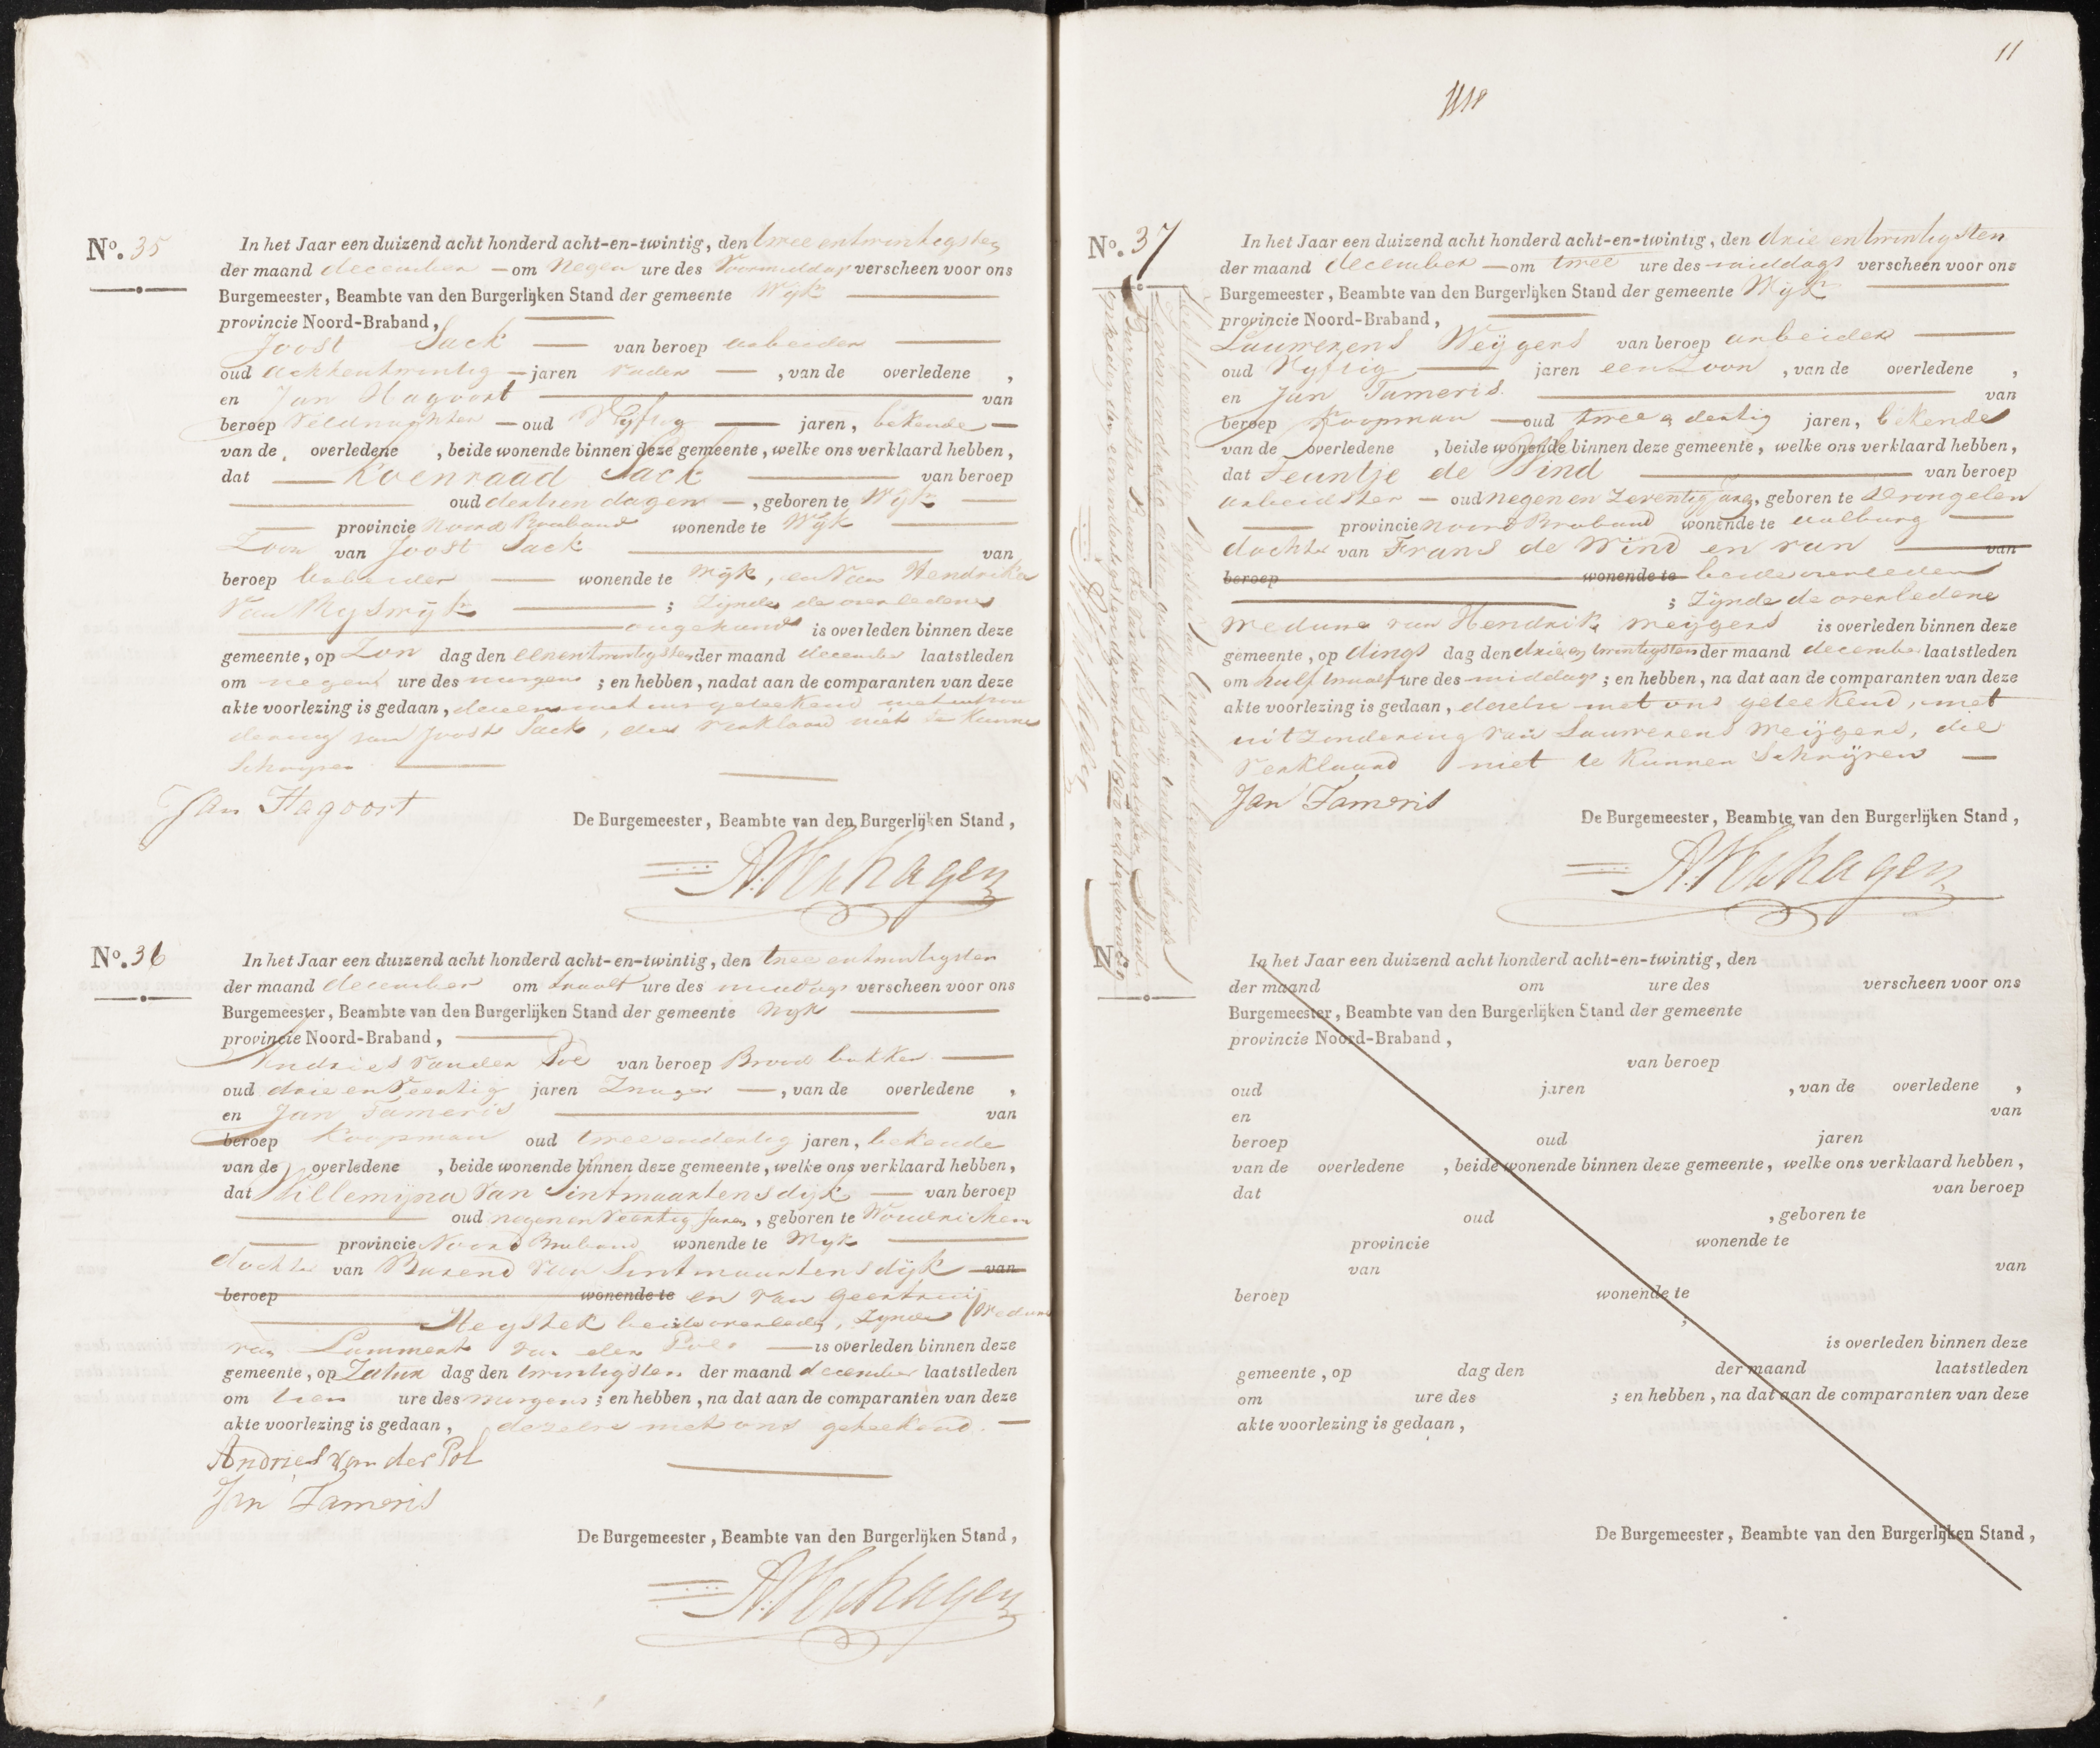 No. 35
In het Jaar een duizend acht honderd acht-en-twintig, den twee entwintigsten
der maand december — om Negen ure des Voormiddags verscheen voor ons
Burgemeester, Beambte van den Burgerlijken Stand der gemeente Wijk
provincie Noord-Braband,
Joost Sack — van beroep arbeider
oud achtentwintig — jaren vader —, van de overledene,
en Jan Hagoort van
beroep veldwachter — oud Vyftig — jaren, bekende —
van de overledene, beide wonende binnen deze gemeente, welke ons verklaard hebben,
dat — Koenraad Sack van beroep
oud dertien dagen —, geboren te Wijk
provincie Noord Braband wonende te Wijk
Zoon van Joost Sack van
beroep arbeider wonende te Wijk, en van Hendrika
van Rijswijk ; Zijnde de overledene
ongehuwd is overleden binnen deze
gemeente, op Zon dag den eenentwintigsten der maand december laatstleden
om negen ure des morgens ; en hebben, nadat aan de comparanten van deze
akte voorlezing is gedaan, deze met ons geteekend met uitzon
dering van Joost Sack, die verklaard niet te kunnen
Schrijven
Jan Hagoort
De Burgemeester, Beambte van den Burgerlijken Stand,
A. Verhagen
No. 36
In het Jaar een duizend acht honderd acht-en-twintig, den twee entwintigsten
der maand december om twaalf ure des middags verscheen voor ons
Burgemeester, Beambte van den Burgerlijken Stand der gemeente Wijk
provincie Noord-Braband,
Andries van der Pol van beroep Brood bakker
oud drie en Veertig jaren Zwager —, van de overledene,
en Jan Tameris van
beroep Koopman oud tweeendertig jaren, bekende
van de overledene, beide wonende binnen deze gemeente, welke ons verklaard hebben,
dat Willemijna van Sintmaartensdijk — van beroep
oud negenen Veertig Jaren, geboren te Woudrichem
provincie Noord Braband wonende te Wijk
dochter van Barend van Sintmaartensdijk van
beroep wonende te en van Geertrui
beide overleden, Zijnde Weduwe
van Lammert van der Pol — is overleden binnen deze
gemeente, op Zatur dag den twintigsten der maand december laatstleden
om tien ure des morgens ; en hebben, na dat aan de comparanten van deze
akte voorlezing is gedaan, dezelve met ons geteekend. —
Andries van der Pol
Jan Tameris
De Burgemeester, Beambte van den Burgerlijken Stand,
A. Verhagen
11
No. 37
In het Jaar een duizend acht honderd acht-en-twintig, den drie entwintigsten
der maand december — om twee ure des middags verscheen voor ons
Burgemeester, Beambte van den Burgerlijken Stand der gemeente Wijk
provincie Noord-Braband,
Lauwerens Weijgers van beroep arbeider
oud Vyftig — jaren een Zoon, van de overledene,
en Jan Tameris van
beroep Koopman — oud twee en dertig jaren, bekende
van de overledene, beide wonende binnen deze gemeente, welke ons verklaard hebben,
dat Teuntje de Wind van beroep
arbeidster — oud negen en Zeventig Jaren, geboren te Drongelen
provincie Noord Braband wonende te aalburg
dochter van Frans de Wind en van van
beroep wonende te beide overleden
; Zijnde de overledene
Weduwe van Hendrik Weijgers is overleden binnen deze
gemeente, op dings dag den drie en twintigsten der maand december laatstleden
om half twaalf ure des middags ; en hebben, na dat aan de comparanten van deze
akte voorlezing is gedaan, dezelve met ons geteekend, met
uitzondering van Lauwerens Weijgers, die
Verklaard niet te kunnen Schrijven —
Jan Tameris
De Burgemeester, Beambte van den Burgerlijken Stand,
A. Verhagen
No.
In het Jaar een duizend acht honderd acht-en-twintig, den
der maand om ure des verscheen voor ons
Burgemeester, Beambte van den Burgerlijken Stand der gemeente
provincie Noord-Braband,
van beroep
oud jaren, van de overledene,
en van
beroep oud jaren
van de overledene, beide wonende binnen deze gemeente, welke ons verklaard hebben,
dat van beroep
oud, geboren te
provincie wonende te
van van
beroep wonende te
;
is overleden binnen deze
gemeente, op dag den der maand laatstleden
om ure des ; en hebben, na dat aan de comparanten van deze
akte voorlezing is gedaan,
De Burgemeester, Beambte van den Burgerlijken Stand,